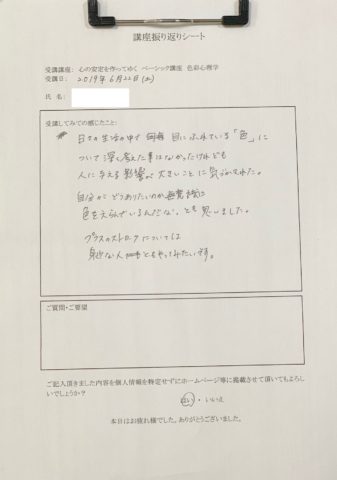 講座振り返りシート
受講講座： 心の安定を作ってゆく ベーシック講座 色彩心理学
受講日： 2019年6月22日(土)
氏 名：
受講してみての感じたこと：
日々の生活の中で 目にふれている「色」に
ついて深く考えた事はなかったけれども
人に与える影響が大きいことに気づかされた。
自分がどうありたいのか無意識に
色をえらんでいるんだな、とも思いました。
プラスのストロークについては
身近な人ともやってみたいです。
ご質問・ご要望
ご記入頂きました内容を個人情報を特定せずにホームページ等に掲載させて頂いてもよろし
いでしょうか？
はい ・ いいえ
本日はお疲れ様でした。ありがとうございました。